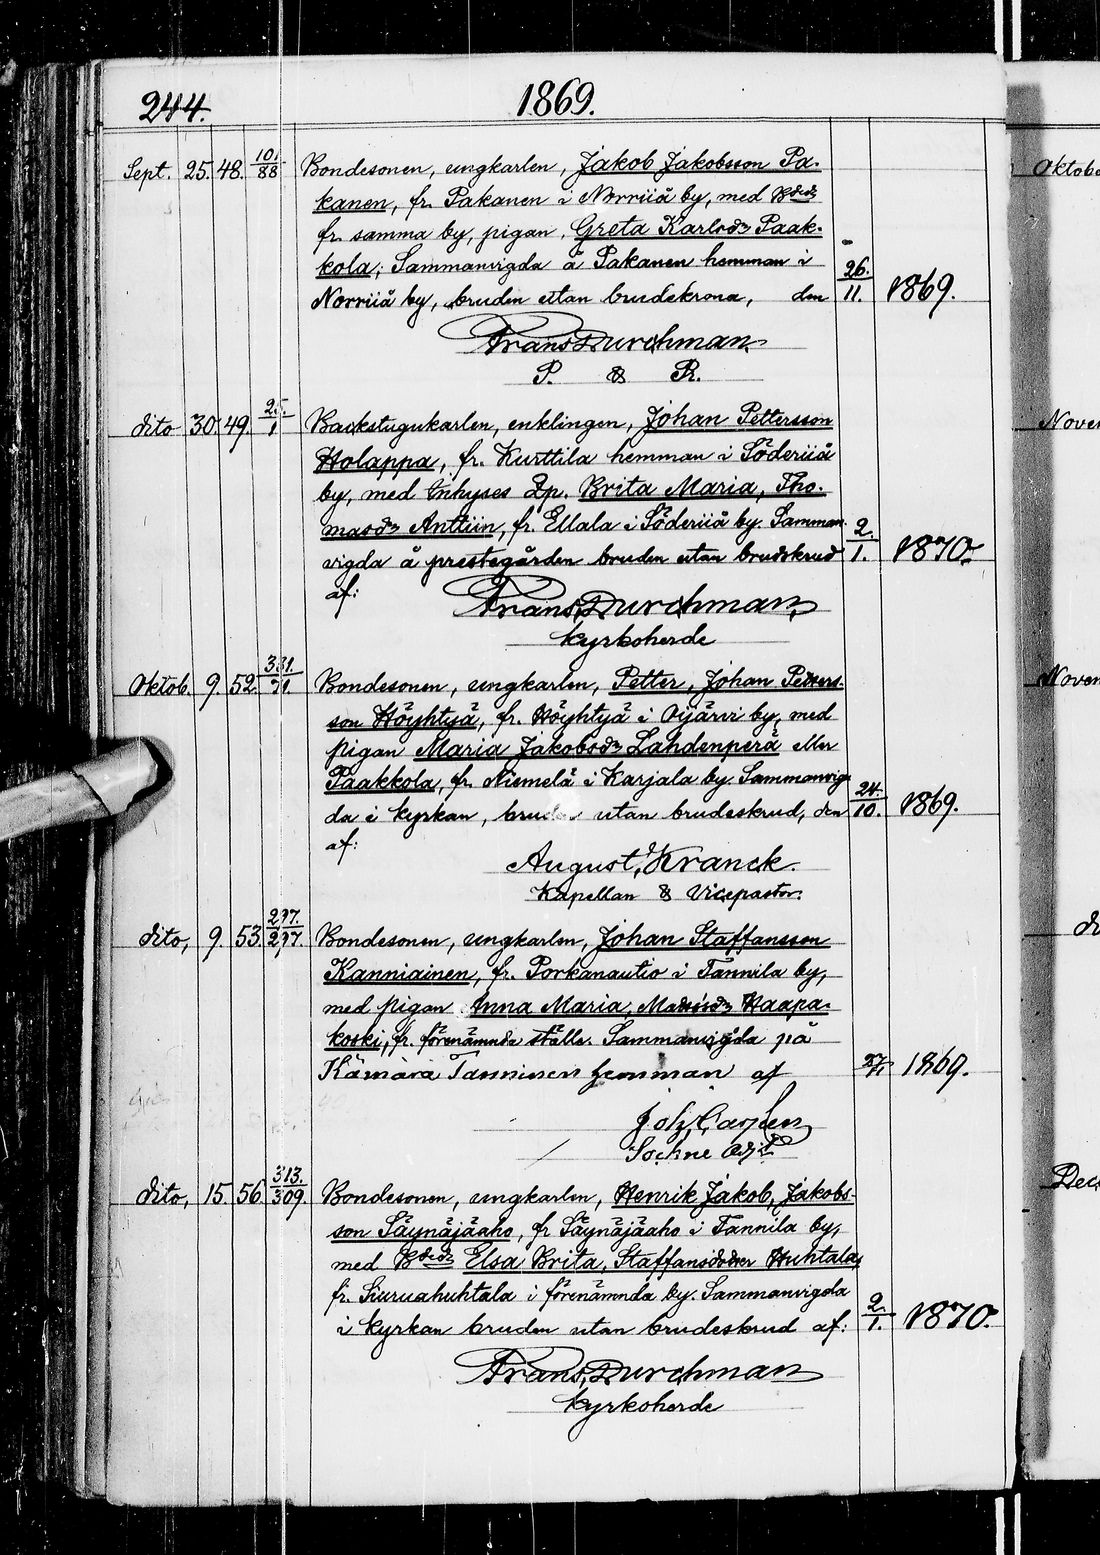 244.
1869.
Sept. 25. 48. 101/88 Bondesonen, ungkarlen, Jakob Jakobsson Pa-
kanen, fr. Pakanen i Norriiå by, med Bdedr
fr. samma by, pigan, Greta Karlsdr Paak-
kola; Sammanvigda å Pakanen hemman i
Norriiå by, bruden utan brudekrona, den 26./11. 1869.
Frans Durchman
P. & R.
dito 30. 49. 25./1 Backstugukarlen, enklingen, Johan Pettersson
Holappa, fr. Kurttila hemman i Söderiiå
by, med Inhyses Dp. Brita Maria, Tho-
masdr Anttiin, fr. Ellala i Söderiiå by. Samman-
vigda å prestegården bruden utan brudskrud 2./1. 1870.
af:
Frans Durchman,
Kyrkoherde
Oktob. 9. 52. 331./71. Bondesonen, ungkarlen, Petter, Johan Petters-
son Höyhtyä, fr. Höyhtyä i Oijärvi by, med
pigan Maria Jakobsdr Lahdenperä eller
Paakkola, fr. Niemelä i Karjala by. Sammanvig-
da i kyrkan, bruden utan brudeskrud, den 24./10. 1869.
af:
August, Kranck.
Kapellan & Vicepastor.
dito, 9. 53. 297./297. Bondesonen, ungkarlen, Johan Staffansson
Kanniainen, fr. Porkanautio i Tannila by,
med pigan Anna Maria, Mattsdr Haapa-
koski, fr. förenämnda ställe. Sammanvigda på
Kämärä Tanninen hemman af 1869.
Joh, Carlen
Sockne Adjt
dito, 15. 56. 313./309. Bondesonen, ungkarlen, Henrik Jakob, Jakobs-
son Säynäjäaho, fr Säynäjäaho i Tannila by,
med Bdedr Elsa Brita, Staffansdotter Huhtala,
fr. Siuruahuhtala i förenämnda by. Sammanvigda
i kyrkan bruden utan brudeskrud af: 2./1. 1870.
Frans, Durchman
Kyrkoherde
Oktobe
Nover
Noven
di
Dec